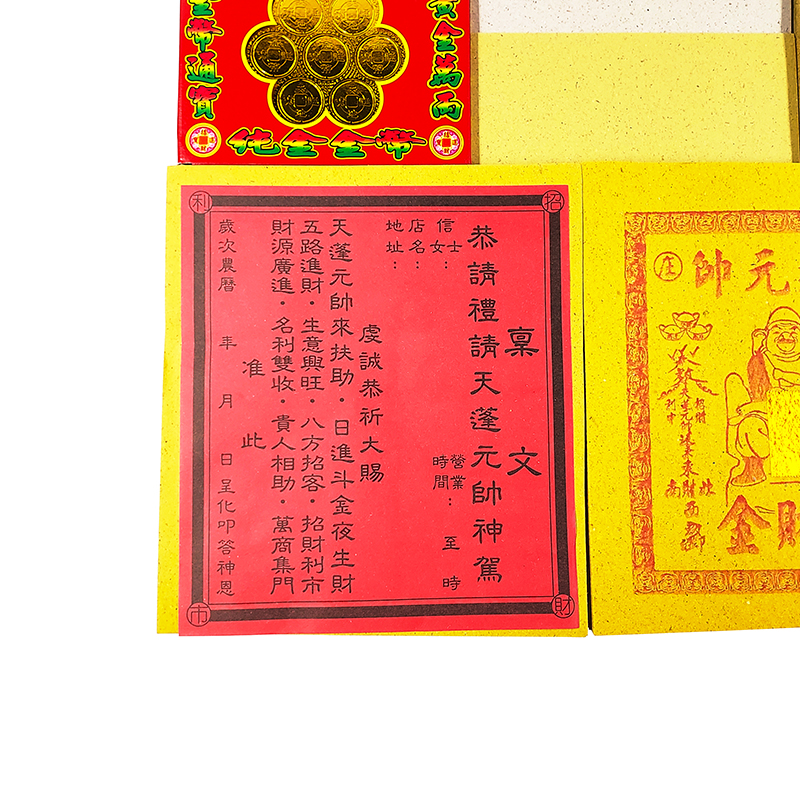 金幣通寶
黃金萬兩
純金金幣
招
財
利
市
稟文
恭請禮請天蓬元帥神駕
信士
女：
店名：
地址：
營業
時間：
至
時
虔誠恭祈大賜
天蓬元帥來扶助・日進斗金夜生財
五路進財・生意興旺・八方招客・招財利市
財源廣進・名利雙收・貴人相助・萬商集門
准此
歲次農曆 年 月 日呈化叩答神恩
元帥
庄
招財
南 北
西
財金